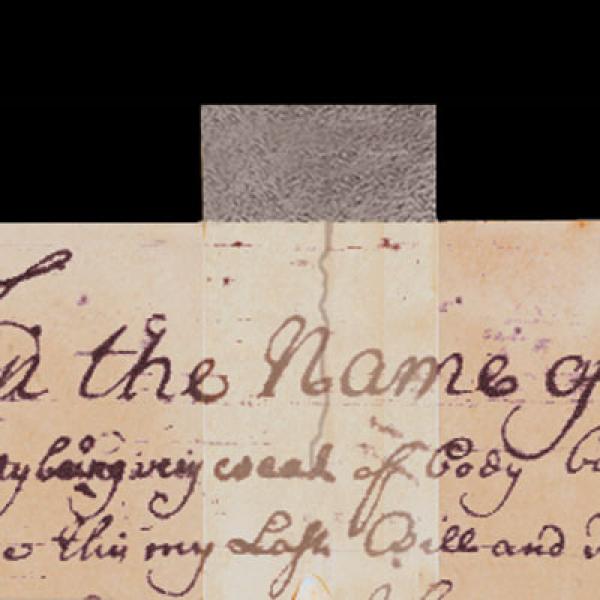 In the Name of
being very weak of body
this my Last Will and